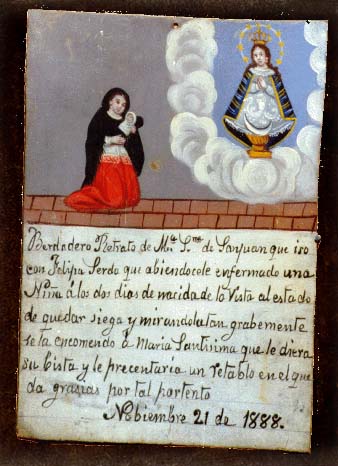 Berdadero Retrato de Mª. Sma. de Sanjuan que iso
con Felipa Serda que abiendocele enfermado una
Niña á los dos dias de nacida de la Vista al estado
de quedar siega y mirandola tan grabemente
se la encomendo a Maria Santisima que le diera
su bista y le precentaria un retablo en el que
da grasias por tal portento
Nobiembre 21 de 1888.